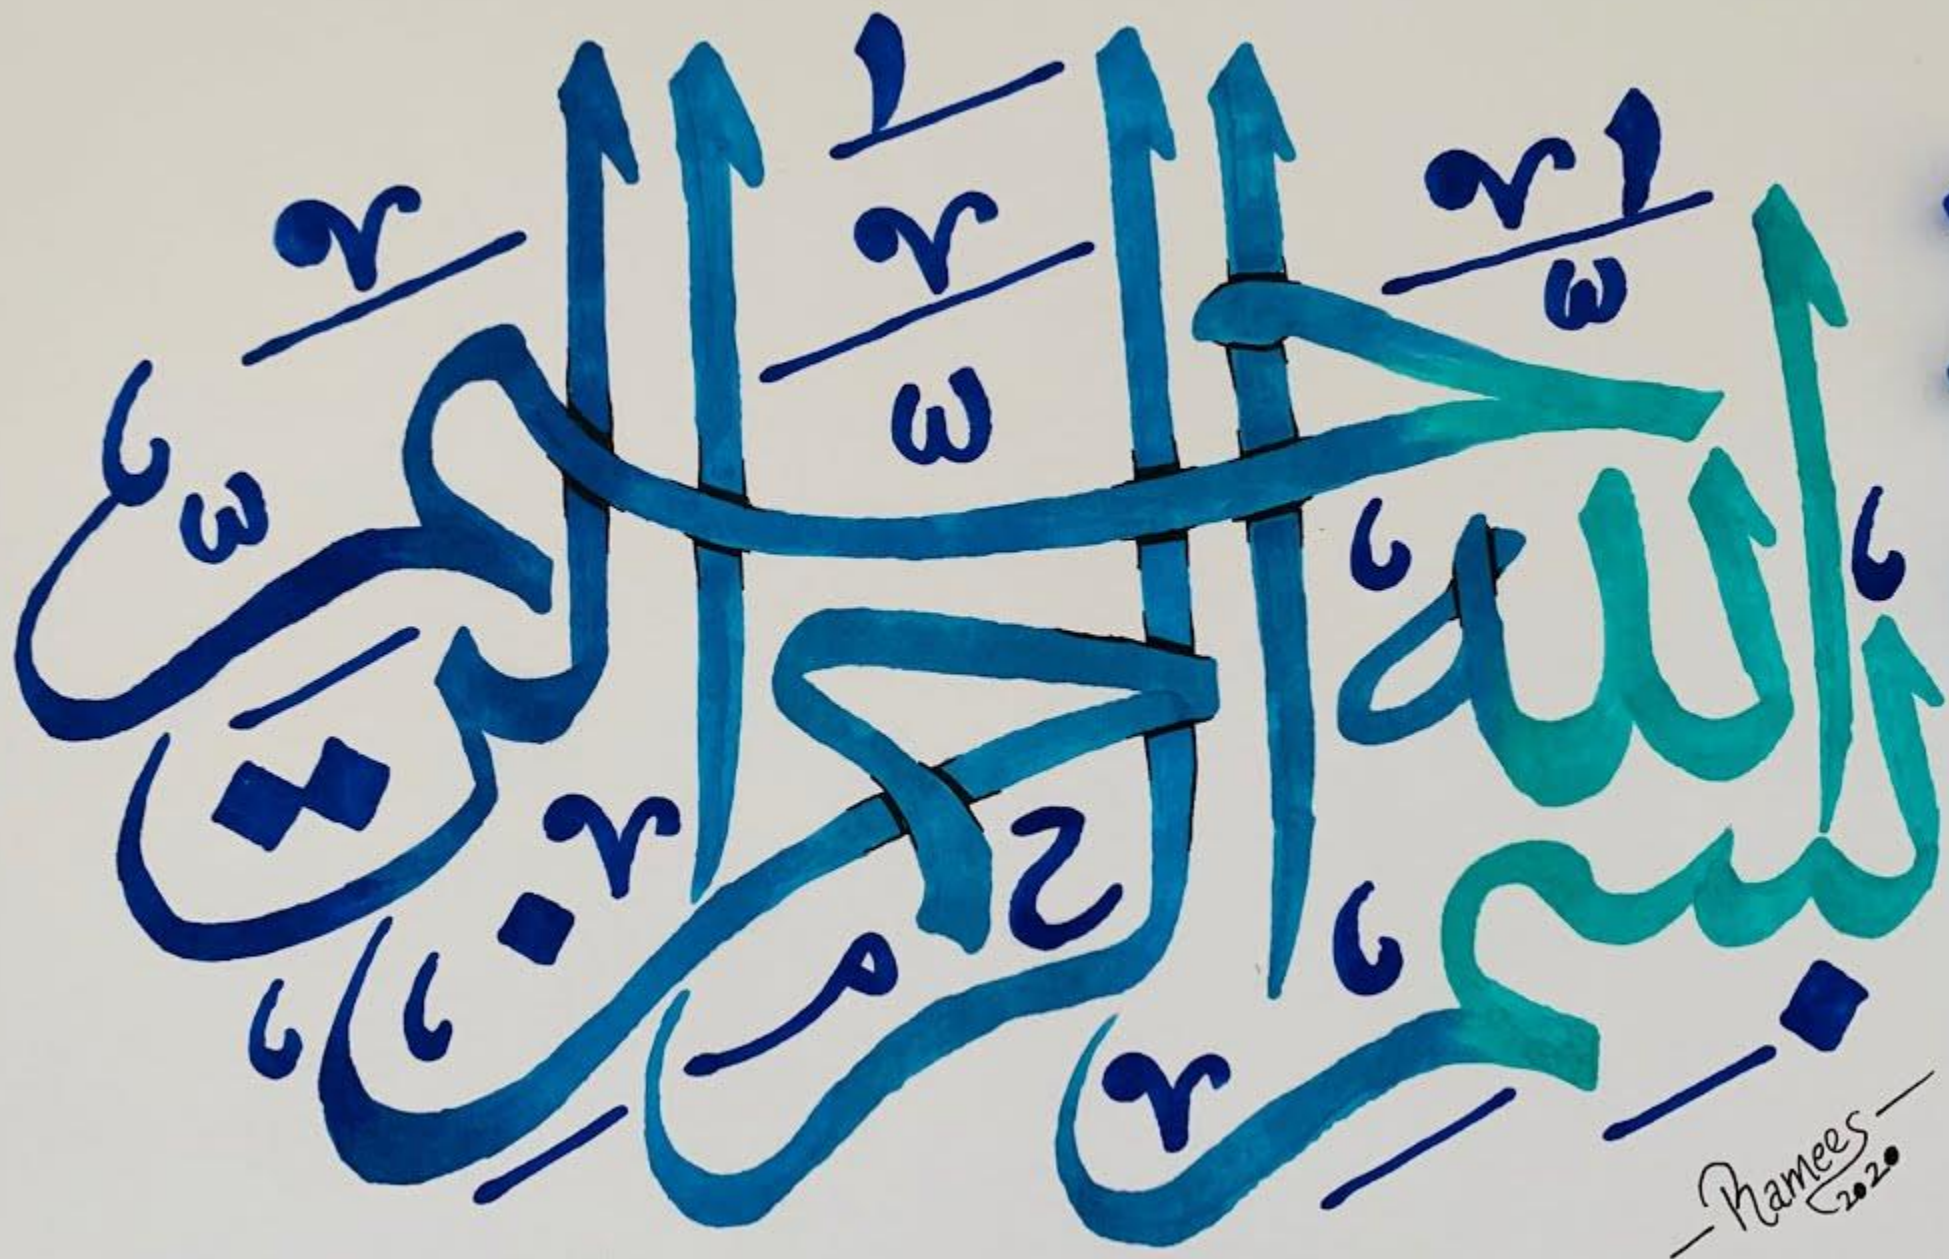 بسم الله الرحمن الرحيم
Ramees
2020